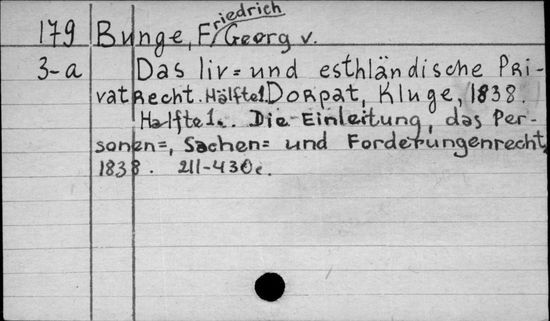 179 Bunge, Friedrich Georg v.
3-a Das liv= und esthländische Pri-
vatrecht. Hälfte1. Dorpat, Kluge, 1838.
Halfte 1.. Die Einleitung, das Per-
sonen=, Sachen= und Forderungenrecht,
1838. 211-430c.